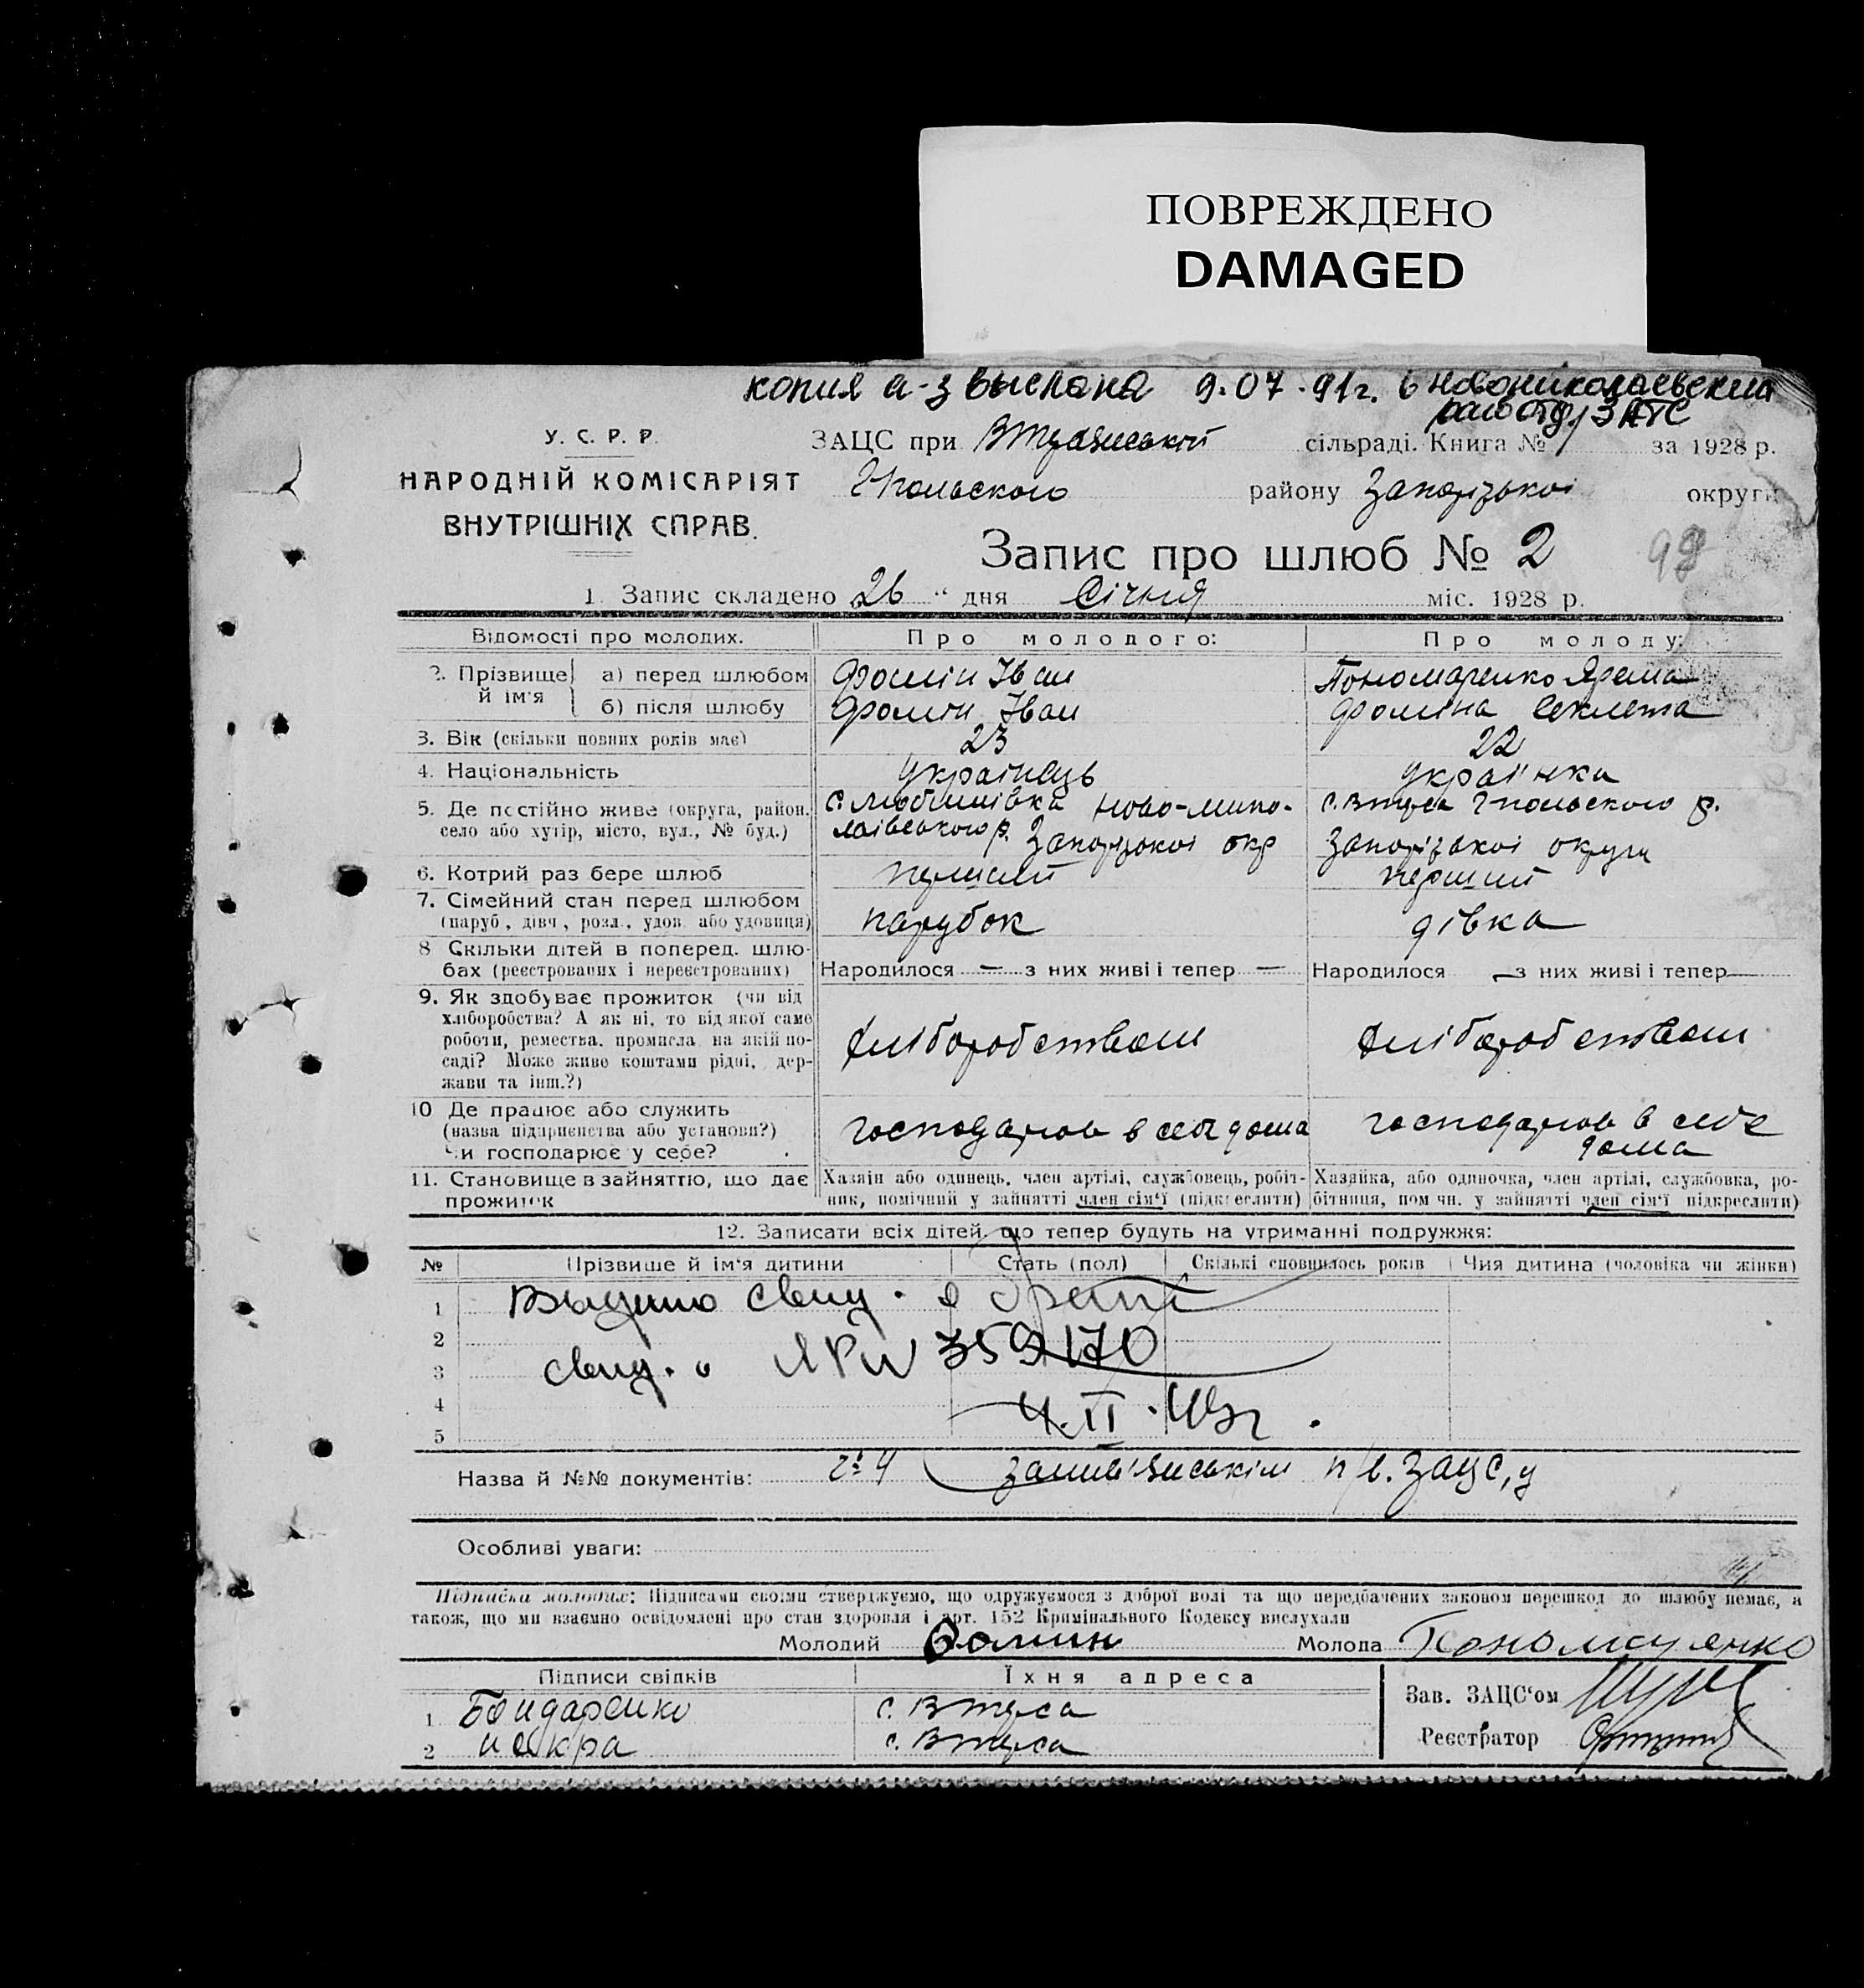 ПОВРЕЖДЕНО
DAMAGED
копия а-з выслана 9.07.91г. в Новониколаевский
райотд. ЗАГС
У. С. Р. Р.
НАРОДНІЙ КОМІСАРІЯТ
ВНУТРІШНІХ СПРАВ.
ЗАЦС при сільраді. Книга № 1 за 1928 р.
Г-Польского району Запорізької округи
Запис про шлюб № 2
99
1. Запис складено 26 " дня Січня міс. 1928 р.
Відомості про молодих. Про молодого: Про молоду:
2. Прізвище й ім'я
а) перед шлюбом Фомін Іван Пономаренко
б) після шлюбу Фомін Іван Фоміна Секлета
3. Вік (скільки повних років має) 23 22
4. Національність українець українка
5. Де постійно живе (округа, район, село або хутір, місто, вул., № буд.)
с. Любимівка Ново-Мико-
лаівського р. Запорізької окр
с. Втуса Г-польского р.
Запорізької округи
6. Котрий раз бере шлюб перший перший
7. Сімейний стан перед шлюбом
(паруб., дівч., розл., удов. або удовиця) парубок дівка
8 Скільки дітей в поперед. шлю-
бах (реєстрованих і нереєстрованих) Народилося — з них живі і тепер — Народилося — з них живі і тепер —
9. Як здобуває прожиток (чи від
хліборобства? А як ні, то від якої саме
роботи, ремества, промисла, на якій по-
саді? Може живе коштами рідні, дер-
жави та інш.?)
хліборобством хліборобством
10 Де працює або служить
(назва підприємства або установи?)
Чи господарює у себе?
господарює в себе дома
господарює в себе
дома
11. Становище в зайняттю, що дає
прожиток
Хазяїн або одинець, член артілі, службовець, робіт-
ник, помічний у зайнятті член сім'ї (підкреслити)
Хазяйка, або одиночка, член артілі, службовка, ро-
бітниця, помічн. у зайнятті член сім'ї підкреслити)
12. Записати всіх дітей, що тепер будуть на утриманні подружжя:
№ Прізвище й ім'я дитини Стать (пол) Скількі сповнилось років Чия дитина (чоловіка чи жінки)
1 Выдано свид. о браке
2
3 свид. 359170
4
5
Назва й №№ документів:
п/в. ЗАЦС,у
Особливі уваги:
Підписка молодих: Підписами своїми стверджуємо, що одружуємося з доброї волі та що передбачених законом перешкод до шлюбу немає, а
також, що ми взаємно освідомлені про стан здоровля і арт. 152 Кримінального Кодексу вислухали
Молодий Фомин Молода Пономаренко
Підписи свідків Їхня адреса
1 Бондаренко с. Втуса
2 Искра с. Втуса
Зав. ЗАЦС'ом
Реєстратор